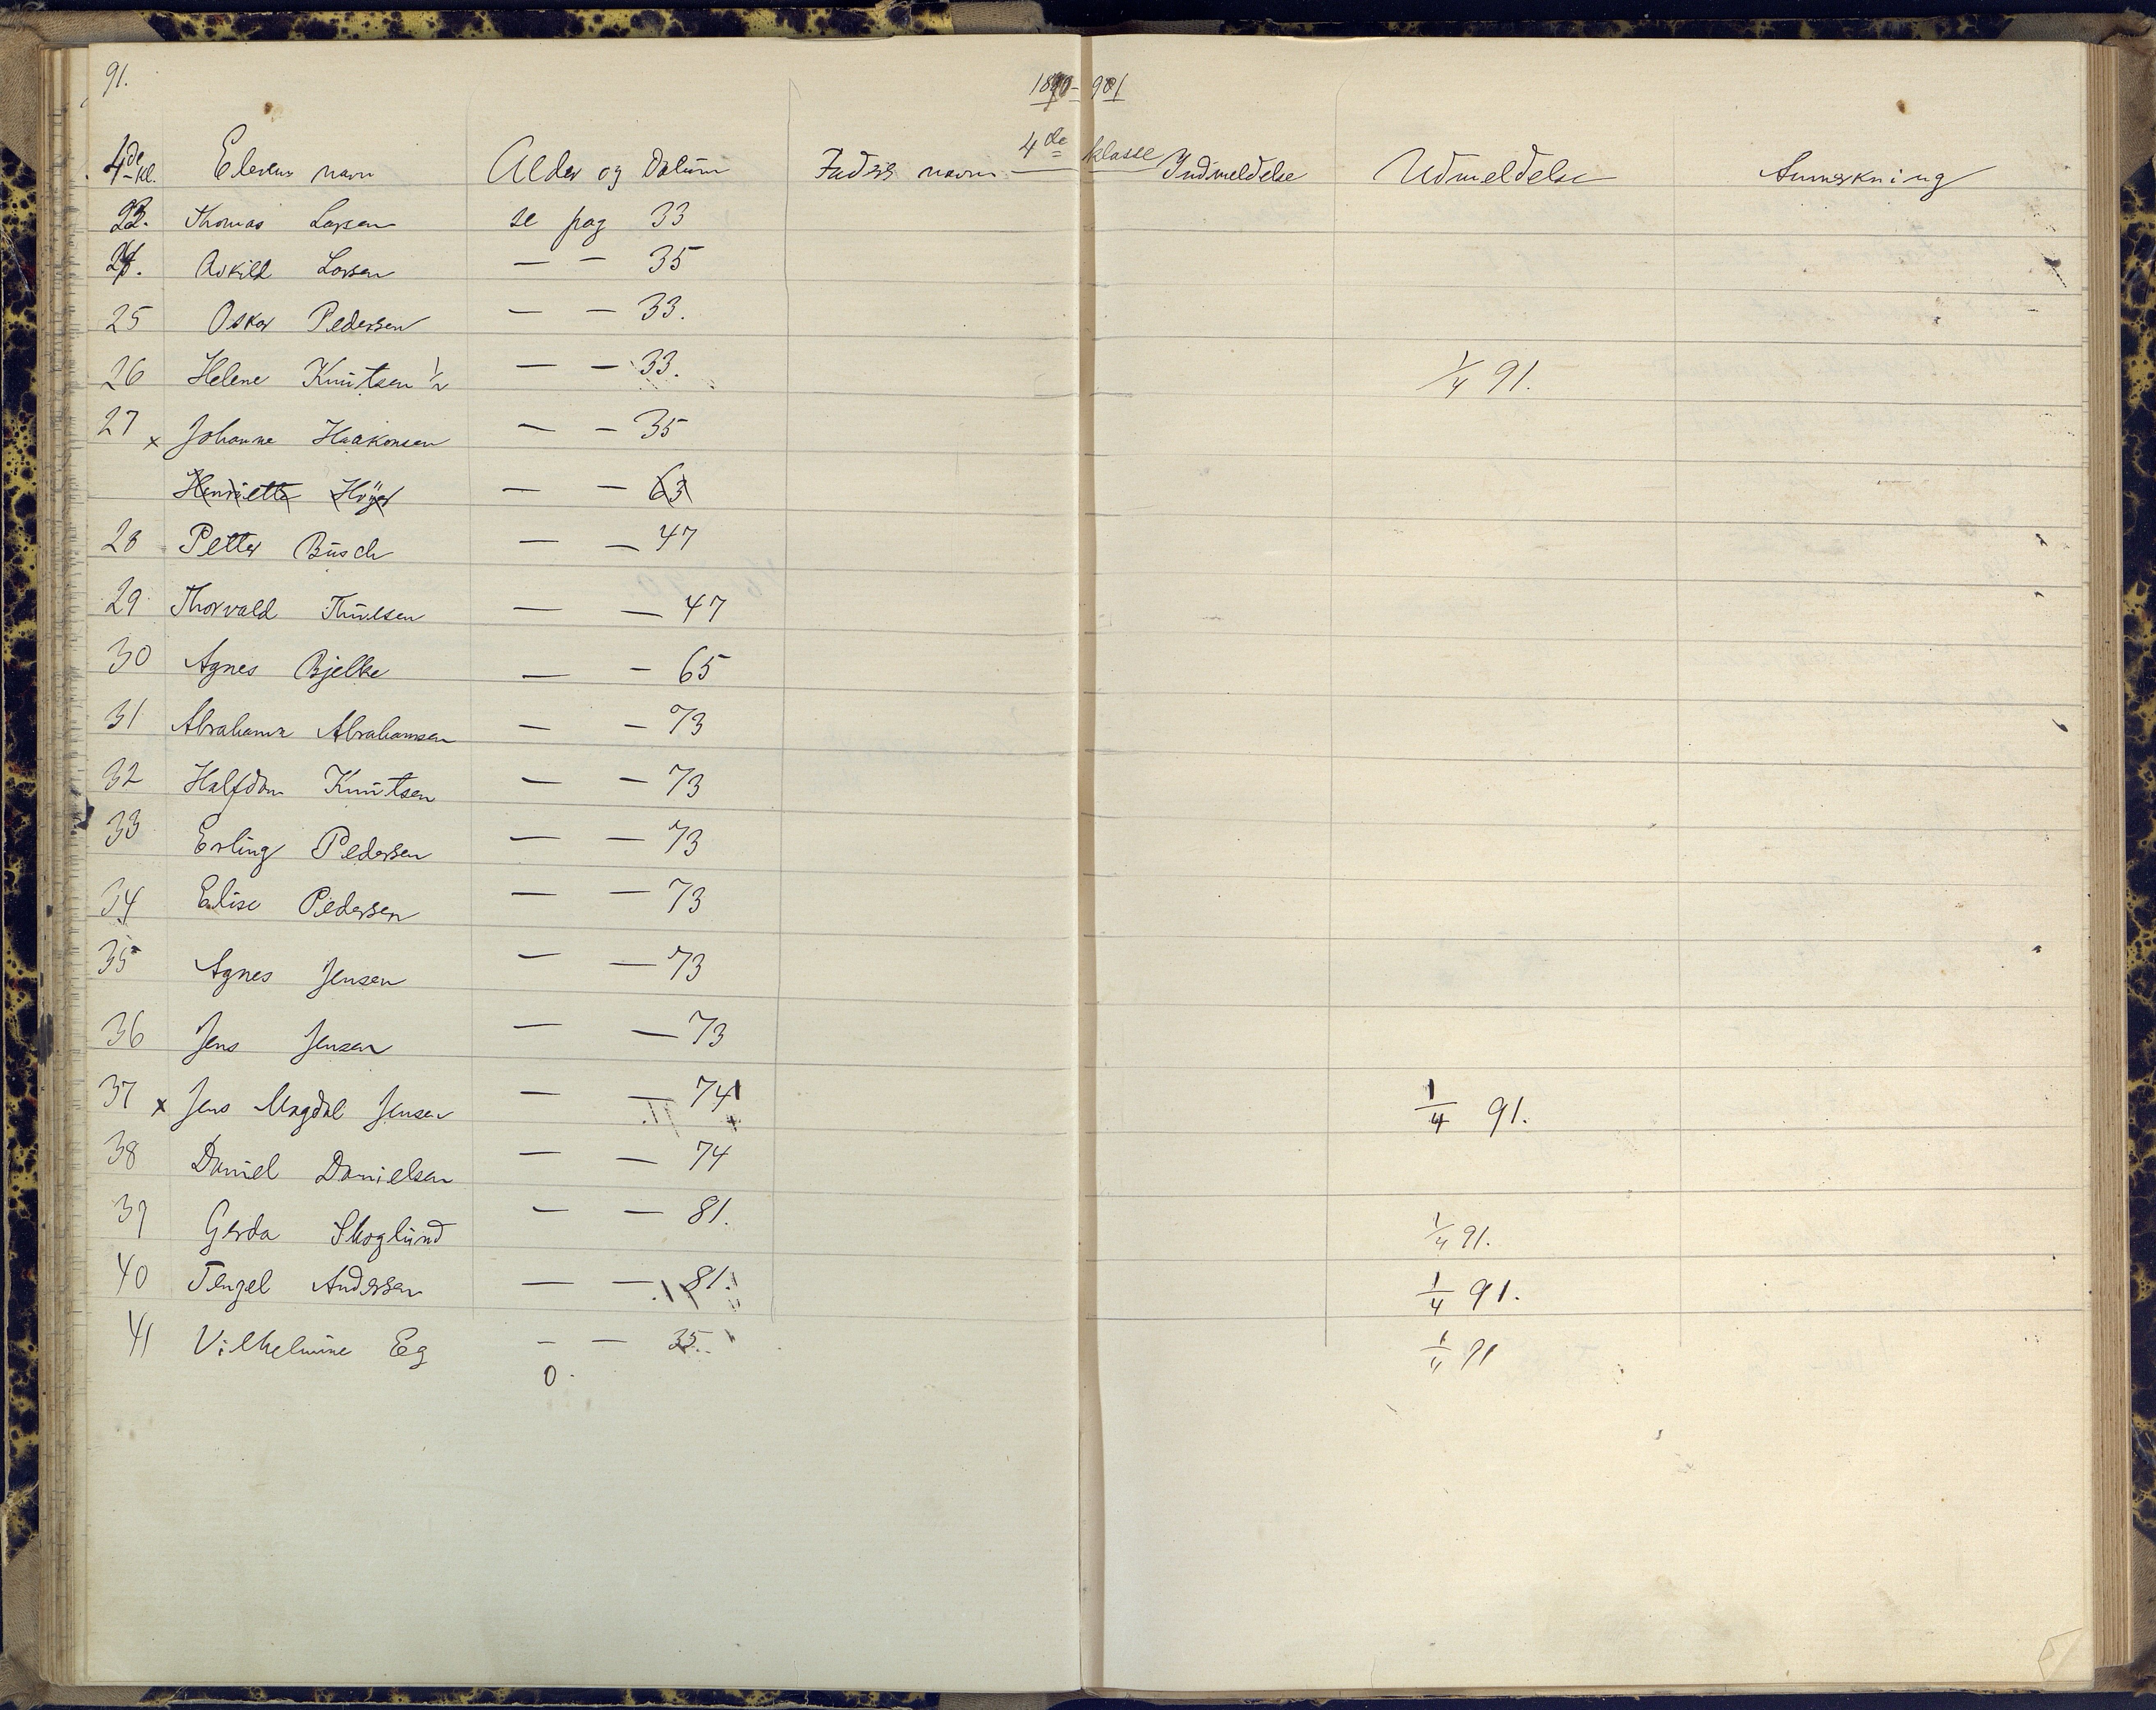 91.
1890-901
4de klasse
4de kl. Elevens navn Alder og Datum Faders navn Indmeldelse Udmeldelse Anmerkning
23. Thomas Larsen se pag 33
24. Askild Larsen — — 35
25 Oskar Pedersen — — 33.
26 Helene Knutsen ½ — — 33. 1/4 91.
27 x Johanne Haakonsen — — 35
Henriette Höyer — — 63
28 Petter Busch — — 47
29 Thorvald Thulsen — — 47
30 Agnes Bjelke — — 65
31 Abraham Abrahamsen — — 73
32 Halfdan Knutsen — — 73
33 Erling Pedersen — — 73
34 Elise Pedersen — — 73
35 Agnes Jensen — — 73
36 Jens Jensen — — 73
37 x Jens Magdal Jensen — — 74 1/4 91.
38 Daniel Danielsen — — 74
39 Gerda Skoglund — — 81. 1/4 91.
40 Tengel Andersen — — 81. 1/4 91.
41 Vilhelmine Eg — — 35. 1/4 91
0.